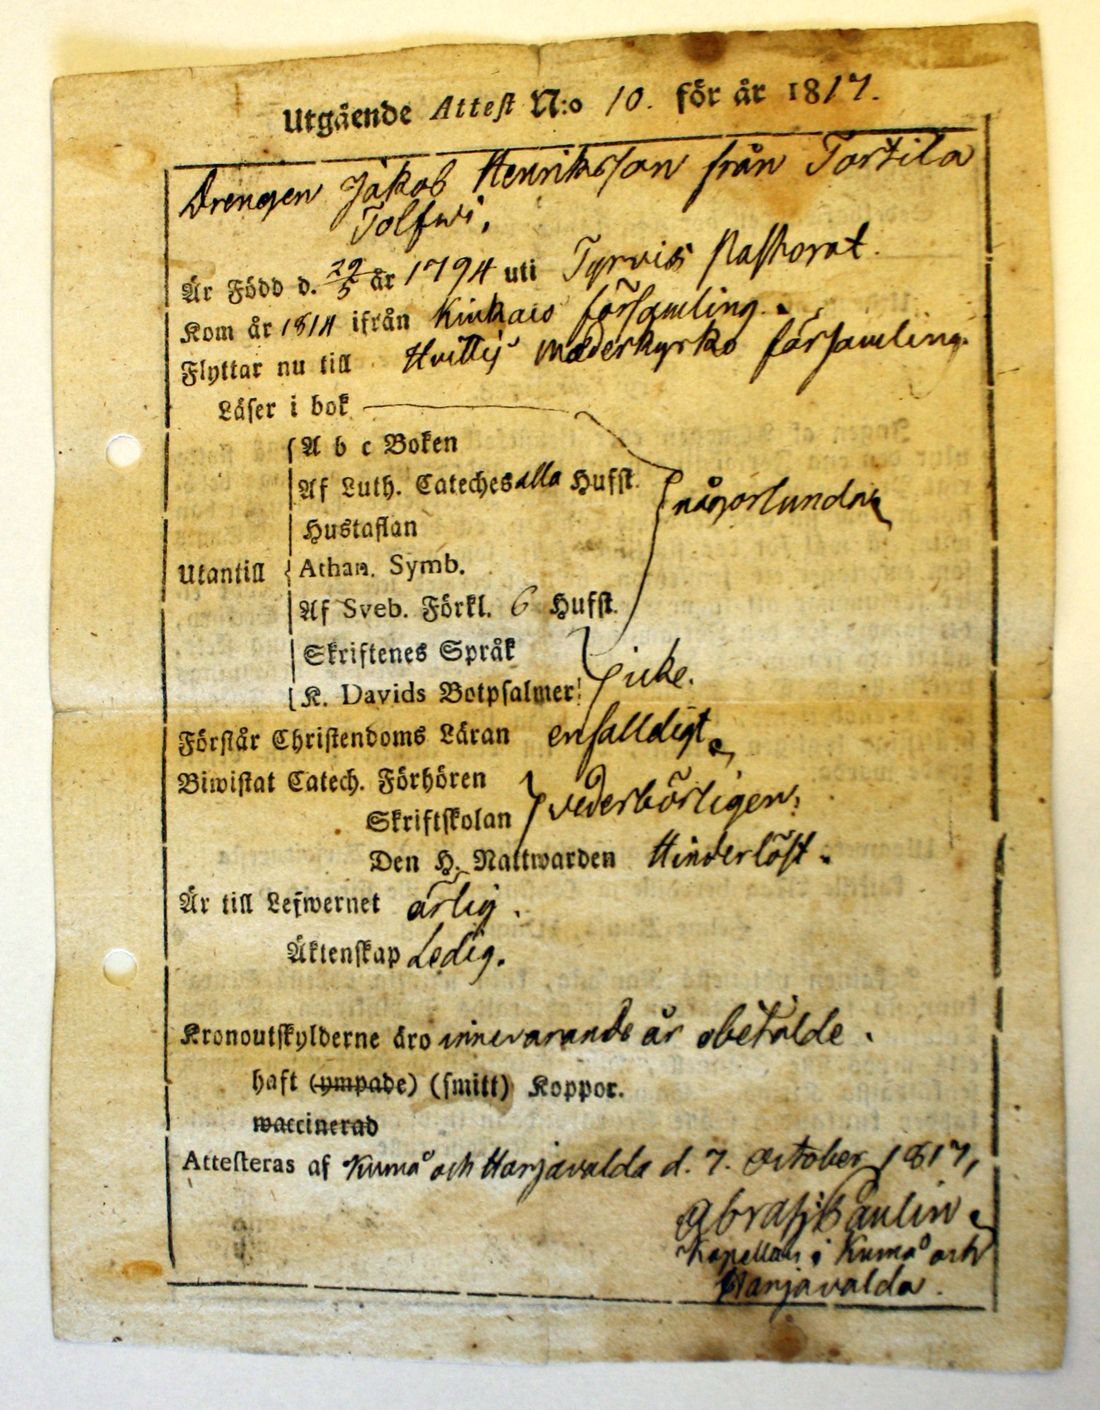 Utgående Attest N:o 10. för år 1817.
Drengen Jakob Henriksson från Torttila
Tolfwi.
Är Född d. 29/5 år 1794 uti Tyrvis Pastorat.
Kom år 1814 ifrån Kiukais församling.
Flyttar nu till Hvittis moderkyrko församling.
Läser i bok
A b c Boken
Af Luth. Cateches alla Hufst. någorlunda
Hustaflan
Utantill Athan. Symb.
Af Sveb. Förkl. 6 Hufst.
Skriftenes Språk
K. Davids Botpsalmer icke.
Förstår Christendoms Läran enfalldigt
Biwistat Catech. Förhören
Skriftskolan vederbörligen.
Den H. Nattwarden Hinderlöst.
Är till Lefwernet ärlig.
Äktenskap Ledig.
Kronoutskylderne äro innevarande år obetalde.
haft (ympade) (smitt) Koppor.
waccinerad
Attesteras af Kumo och Harjavalda d. 7. October 1817,
Paulin
Kapellan i Kumo och
Harjavalda.